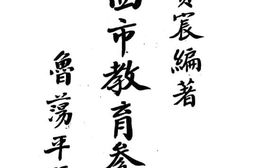 宸編著
市教育參
魯蕩平